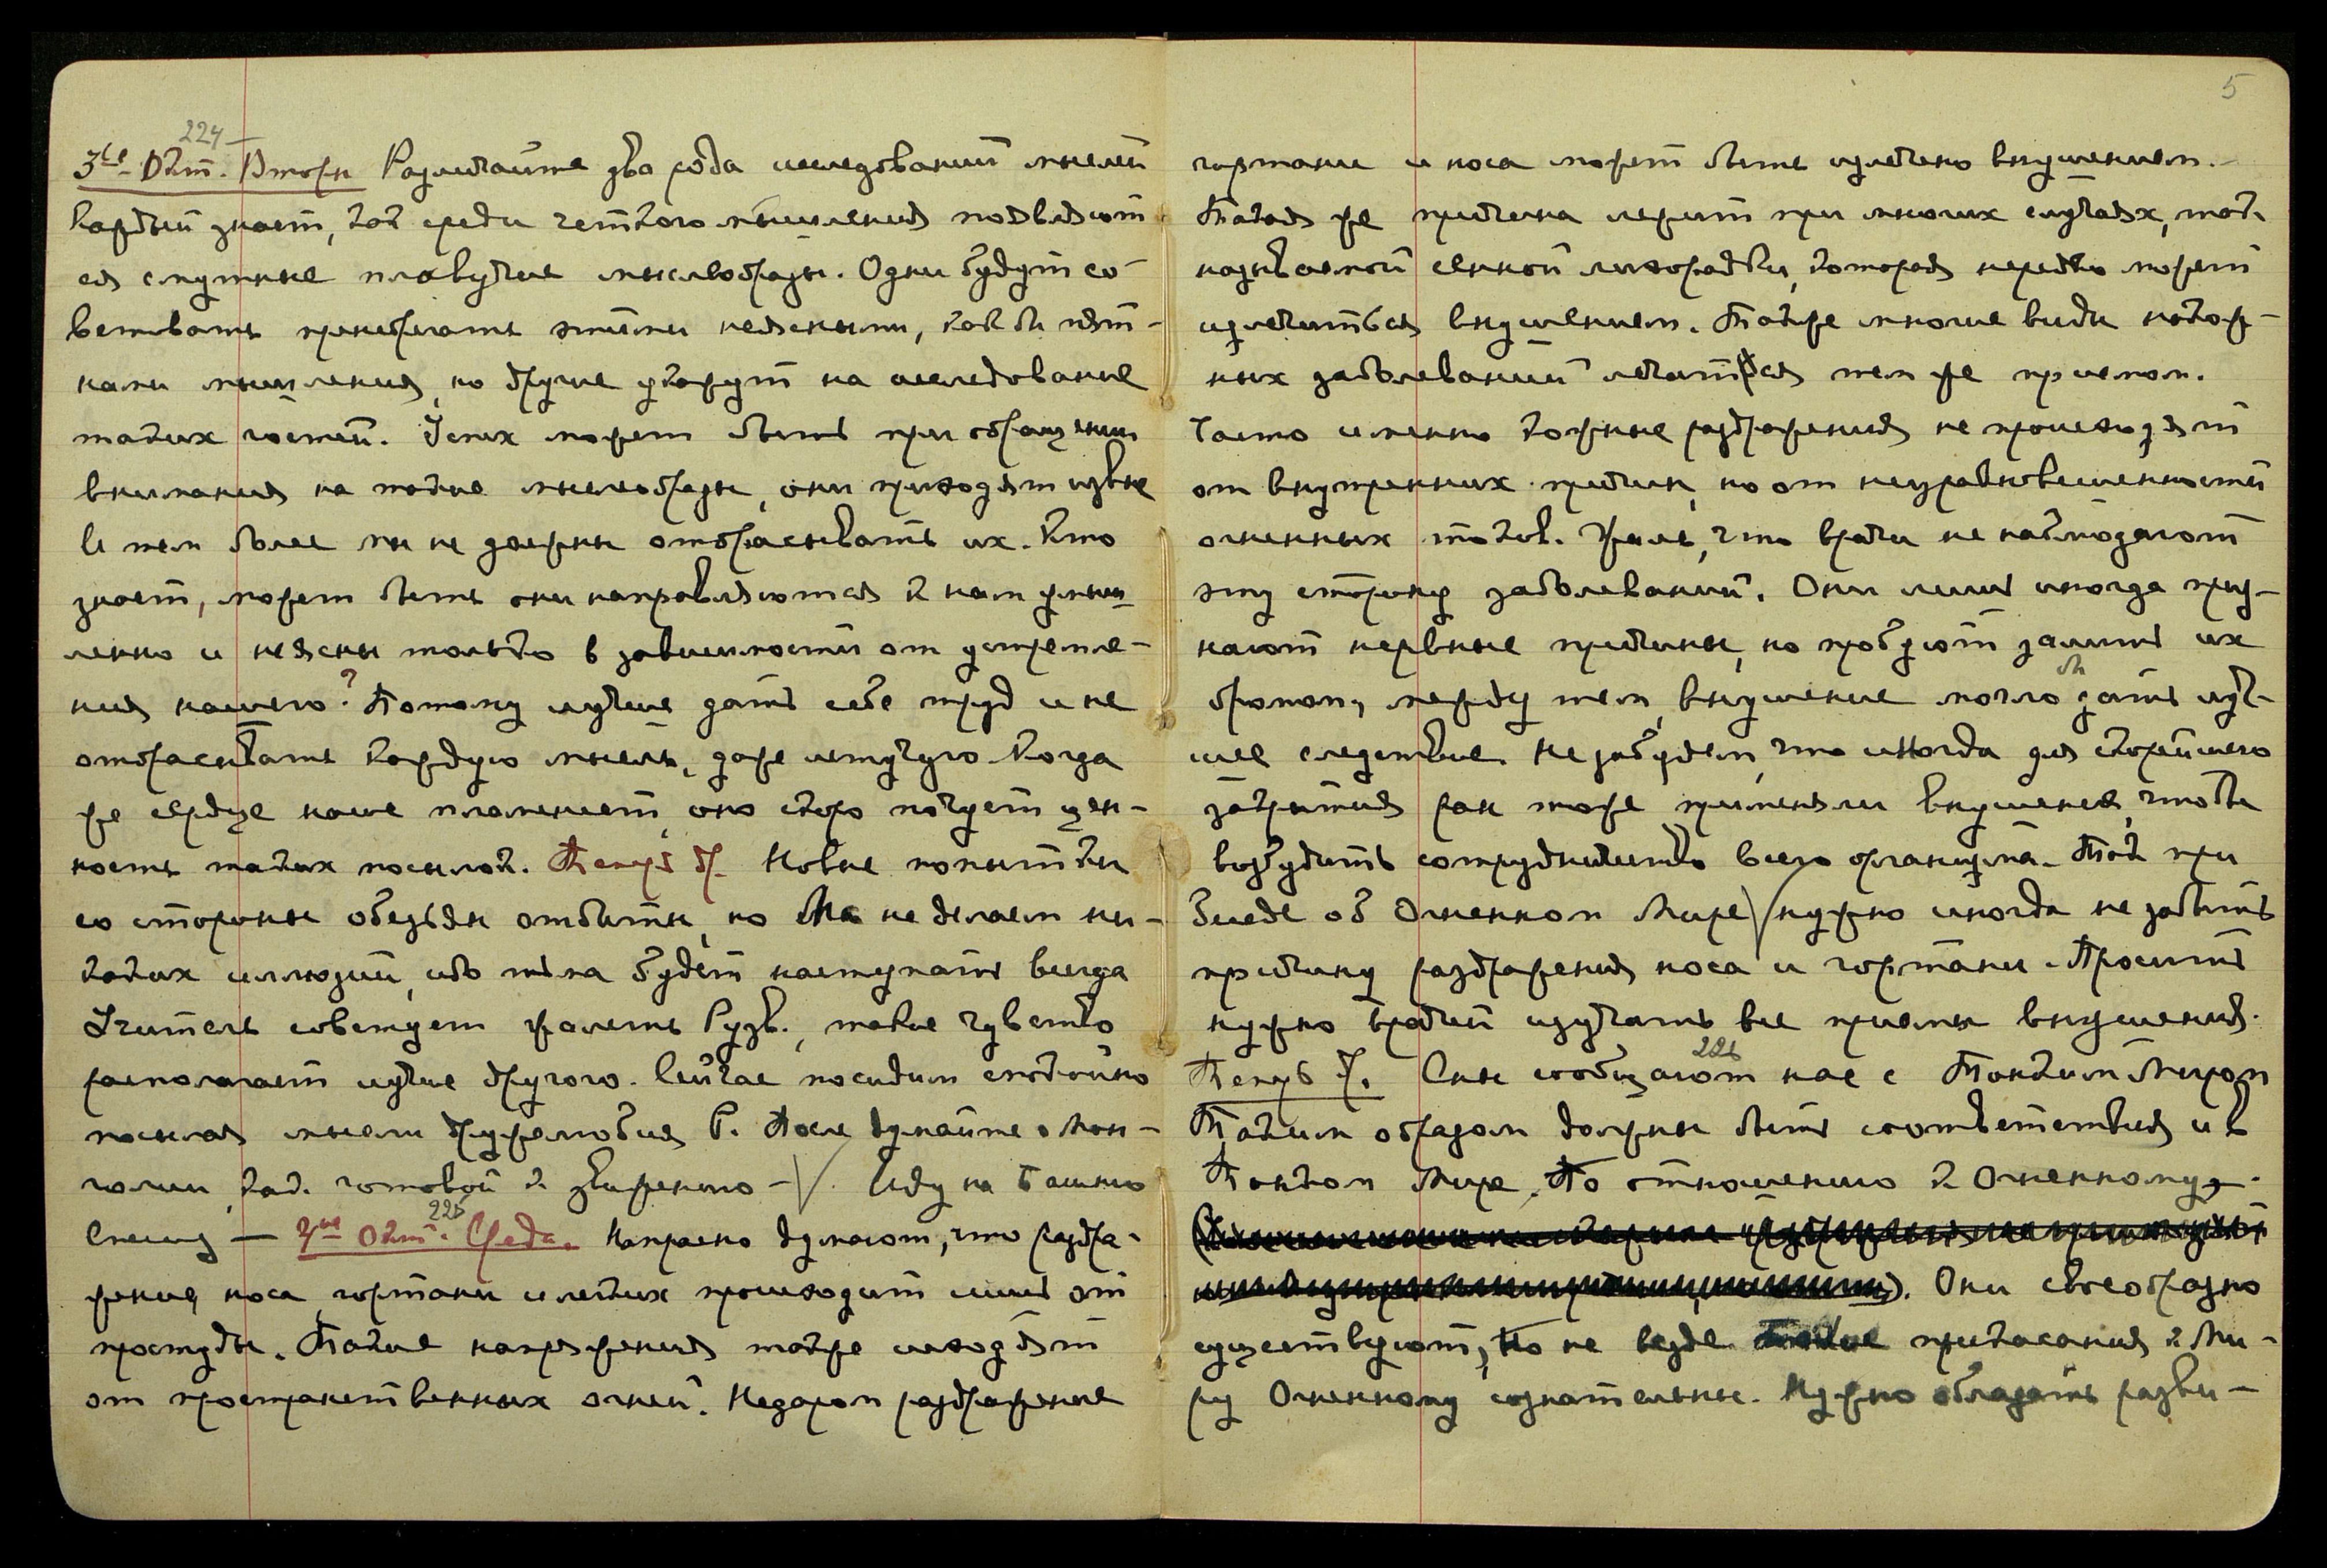 224 —
3ье Окт. Вторн Различайте два рода исследований мыслей
Каждый знает, как среди четкого мышления появляют
ся смутные пловучие мыслеобразы. Одни будут со-
ветовать пренебрегать этими неясными, как бы пят-
нами мышления, но другие укажут на исследование
таких гостей. Успех может быть при обращении
внимания на такие мыслеобразы, они приходят извне
И тем более мы не должны отбрасывать их. Кто
знает, может быть они направляются к нам умыш
ленно и неясны только в зависимости от устремле-
ния нашего? Потому лучше дать себе труд и не
отбрасывать каждую мысль, даже летучую. Когда
же сердце наше пламенеет, оно скоро почует цен-
ность таких посылок. Новые попытки
со стороны обезьян отбиты, но Мы не делаем ни-
каких иллюзий, ибо тьма будет наступать всегда
Учитель советует жалеть Рузв., такое чувство
располагает лучше другого. Сейчас посидим спокойно
посылая мысли дружелюбия Р. После думайте о Мон-
голии, как готовой к движению — Иду на Башню
Спешу —
225
4ое Окт. Среда. Напрасно думают, что раздра-
жение носа, гортани и легких происходит лишь от
простуды. Такие напряжения также исходят
от пространственных огней. Недаром раздражение
5
гортани и носа может быть излечено внушением.
Такая же причина лежит при многих случаях, так
называемой сенной лихорадки, которая нередко может
излечиться внушением. Также многие виды накож-
ных заболеваний лечатся тем же приемом.
Часто именно кожные раздражения не происходят
от внутренних причин, но от неуравновешенности
огненных токов. Жаль, что врачи не наблюдают
эту сторону заболеваний. Они лишь иногда приз-
нают нервные причины, но пробуют залить их
бромом, между тем, внушение могло бы дать луч-
шее следствие. Не забудем, что иногда для скорейшего
закрытия ран тоже применяли внушение, чтобы
возбудить сотрудничество всего организма. Так при
Беседе об Огненном Мире нужно иногда не забыть
причину раздражения носа и гортани. Просить
нужно врачей изучать все приемы внушения.
226
Сны сообщают нас с Тонким Миром
Таким образом должны быть соответствия и в
Тонком Мире. По отношению к Огненному,
Они своеобразно
существуют, но не везде прикасания к Ми-
ру Огненному сознательны. Нужно обладать разви-